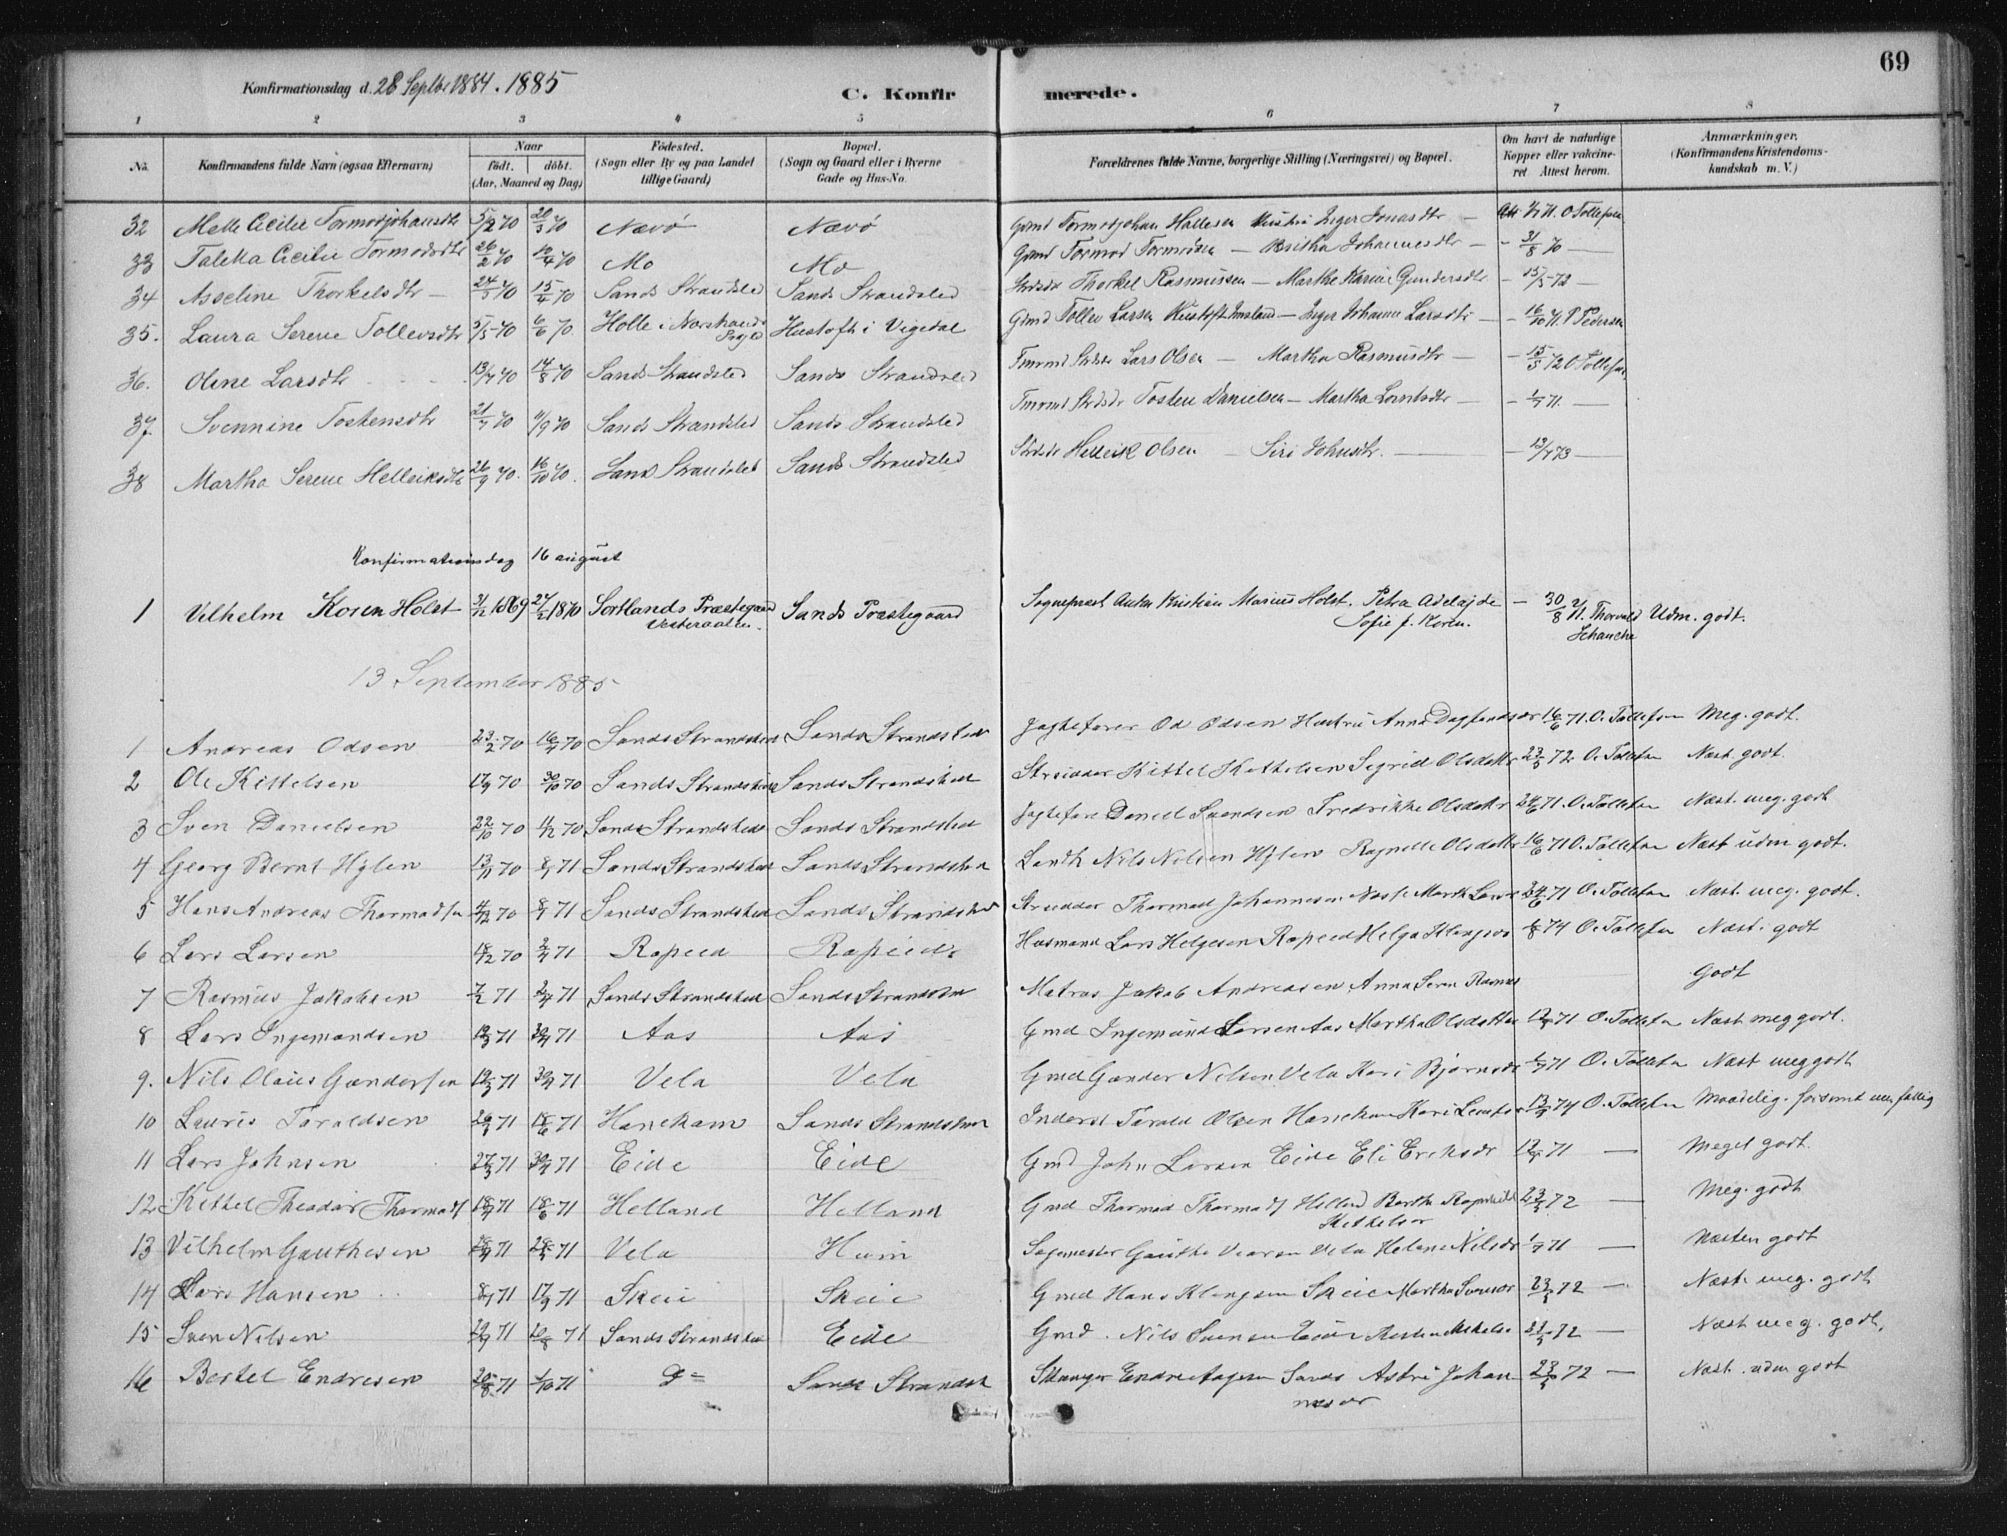 69
Konfirmationsdag d. 28 Septbr 1884. 1885
C. Konfirmerede.
1 2 3 4 5 6 7 8
No. Konfirmandens fulde Navn (ogsaa Efternavn) Naar födt. döbt. (Aar, Maaned og Dag) Födested. (Sogn eller By og paa Landet tillige Gaard) Bopæl. (Sogn og Gaard eller i Byerne Gade og Hus-No. Forældrenes fulde Navne, borgerlige Stilling (Næringsvei) og Bopæl. Om havt de naturlige Kopper eller vakcineret Attest herom. Anmærkninger, (Konfirmandens Kristendomskundskab m. V.)
32 Cecilie Tormodjohansdtr 5/2 70 20/3 70 Nævö Nævö Gmd Tormodjohan Hallesen Hustru Inger Jonasdtr O Tollefsen
33 Cicilie Tormodsdtr 26/2 70 10/4 70 Mo Mo Gmd Tormod Tormodsen — Britha Johannesdtr — 31/8 70 —
34 Asseline Thorkelsdtr — 24/3 70 15/4 70 Sands Strandsted Sands Strandsted Thorkel Rasmussen — Marthe Karine Gundersdtr - 15/5 72 —
35. Laura Serene Tollevsdtr 5/5 70 6/6 70 Holle i Hustoft i Vigedal Gmd Tollev Larsen Hustoft Imsland — Inger Johanne Larsdtr — 16/10 71. P Pedersen
36. Oline Larsdtr 13/7 70 14/8 70 Sands Strandsted Sands Strandsted Lars Olsen — Martha Rasmusdtr — 15/5 72 O Tollefsen
37 Svennine Tostensdtr 21/7 70 11/9 70 Sands Strandsted Sands Strandsted Tosten Danielsen — Martha — 1/7 71. —
38 Martha Serene Helleiksdtr 26/9 70. 16/10 70. Sands Strandsted Sands Strandsted Helleik Olsen Siri Johnsdtr. — 13/7 73 —
Konfirmationsdag 16 august
1 Vilhelm Koren Holst 31/12 1869 27/2 1870 Sortlands Præstegaard Vesteraalen. Sands Præstegaard Sognepræst Anton Kristian Marius Holst. Petra Adelajde Sofie f. Koren. — 30/8 71. Thorvald Schanche Udm. godt.
13 September 1885
1 Andreas Odsen 23/2 70 16/4 70 Sands Strandsted Sands Strandsted Jagtefører Od Odsen Hustru Anna 16/6 71. O. Tollefsen Meg. godt.
2 Ole Kittelsen 17/9 70 30/10 70 Sands Strandsted Sands Strandsted Strsidder Kittel Kittelsen Sigrid Olsdatter 23/5 72 O. Tollefsen Næst. godt.
3 Sven Danielsen 22/10 70 70 Sands Strandsted Sands Strandsted Daniel Svendsen Fredrikke Olsdatr 24/6 71. O. Tollefsen Næst. meg. godt
4 Georg Bernt Hylen 13/11 70 8/1 71 Sands Strandsted Sands Strandsted Landh Nils Nilsen Hylen Olsdatter 16/6 71 O. Tollefsen Næst udm godt.
5 Hans Andreas Thormodsen 4/12 70 8/1 71 Sands Strandsted Sands Strandsted Strsidder Thormod Johannesen Martha 24/6 71 O. Tollefsen Næst. meg. godt.
6 Lars Larsen 18/12 70 2/4 71 Ropeid Ropeid Husmand Lars Helgesen Ropeid Helga 74 O. Tollefsen Næst. godt
7 Rasmus Jakobsen 7/2 71 2/4 71 Sands Strandsted Sands Strandsted Matros Jakob Andreasen, Anna Rasmus Godt
8 Lars Ingemundsen 19/3 71 30/4 71 Aas Aas Gmd Ingemund Larsen Aas Martha Olsdatter 71 O. Tollefsen Næst meg godt.
9. Nils Olaus Gundersen 19/3 71 30/4 71 Vela Vela Gmd Gunder Nilsen Vela Kari Bjørnsdr 1/7 71 O. Tollefsen Næst meg godt
10 Lauris Taraldsen 71 18/6 71 Hanekam Sands Strandsted Inderst Tarald Olsen Hanekam Kari 13/7 74 O. Tollefsen Maadelig.
11 Lars Johnsen 27/3 71 30/4 71 Eide Eide Gmd John Larsen Eide Eli Eriksdr 71 — Meget godt.
12 Kittel Theodor Thormods 18/4 71 18/6 71 Helland Helland Gmd Thormod Thormods Helland Bertha Ragnhild Kittelsdr 23/5 72 — Meg. godt
13 Vilhelm Gauthesen 71 71 Vela Gauthe Vela Helene Nilsdr 1/7 71 — Næsten godt
14 Lars Hansen 8/7 71 17/9 71 Skeie Skeie Gmd Hans Klengsen Skeie Martha Svensdr 23/5 72 — Næst. meg. godt
15 Sven Nilsen 71 20/8 71 Sands Strandsted Eide Gmd. Nils Svensen Eide 23/5 72 — Næst meg. godt.
16 Bertel Endresen 20/8 71 1/10 71 Sands Strandst Endre Aagesen Sands Astri Johannesdr 23/5 72 — Næst. udm godt